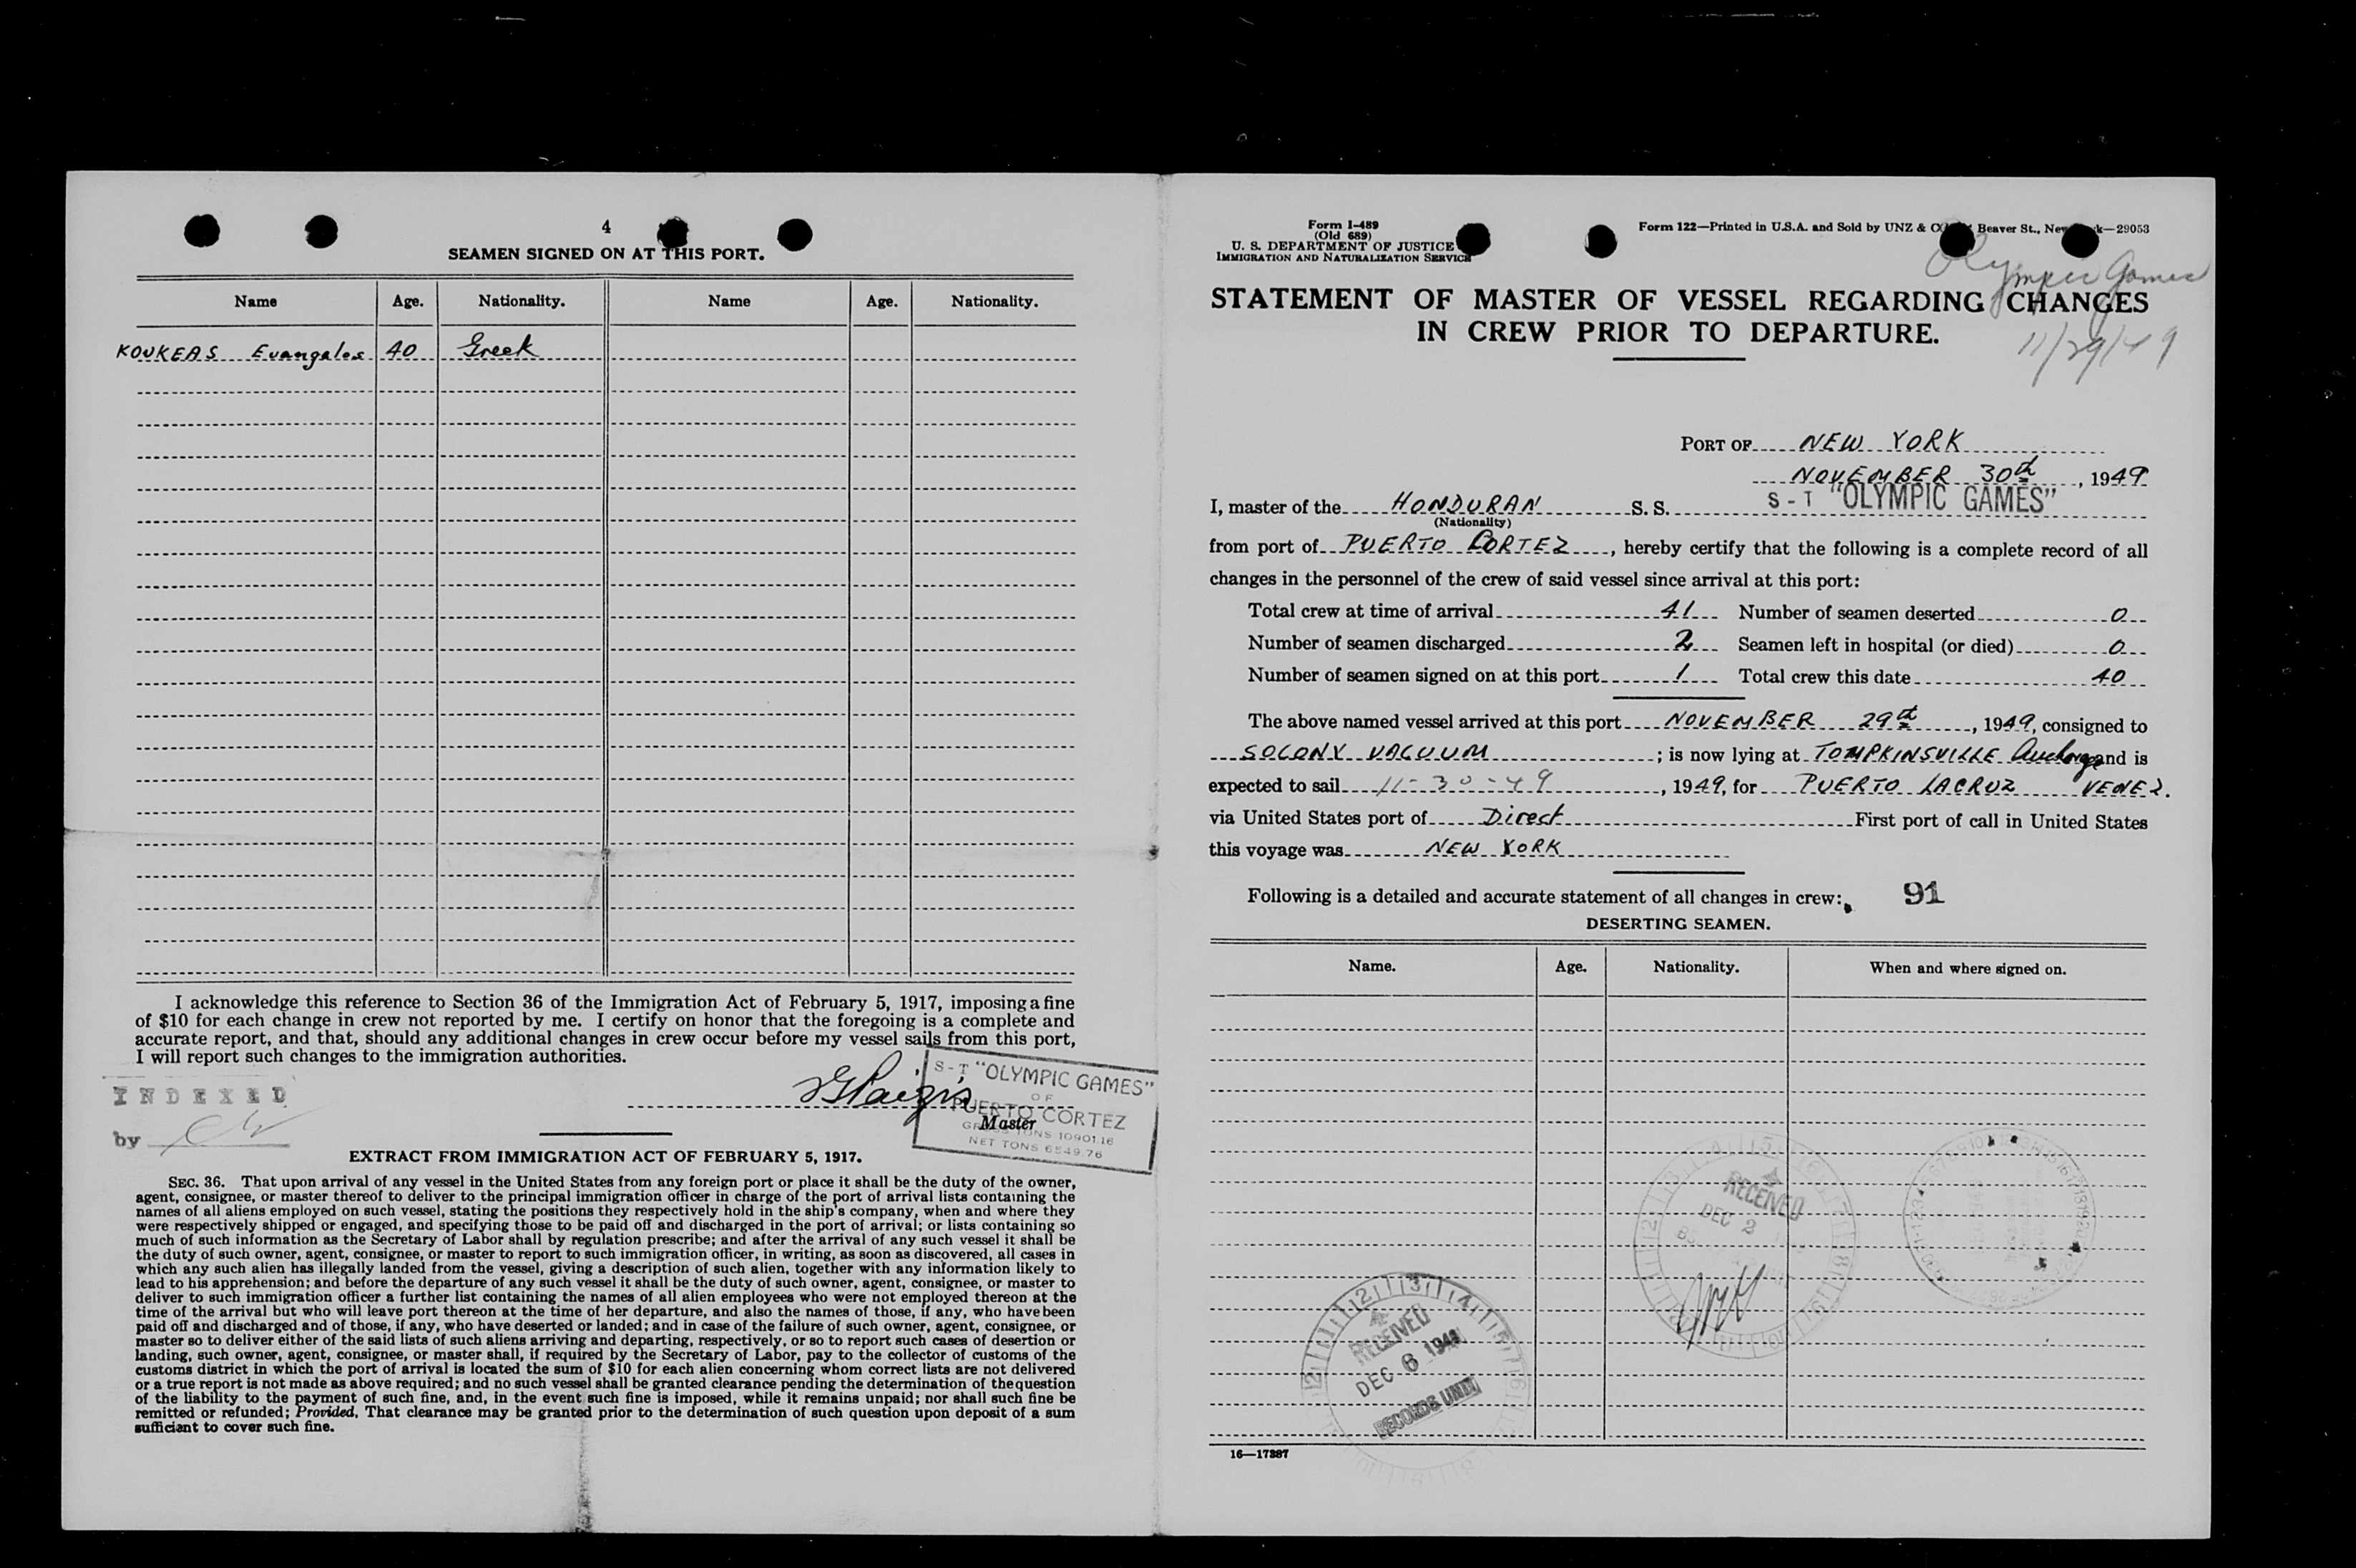 4
SEAMEN SIGNED ON AT THIS PORT.
Name Age. Nationality. Name Age. Nationality.
KOUKEAS Evangalos 40 Greek
I acknowledge this reference to Section 36 of the Immigration Act of February 5, 1917, imposing a fine
of $10 for each change in crew not reported by me. I certify on honor that the foregoing is a complete and
accurate report, and that, should any additional changes in crew occur before my vessel sails from this port,
I will report such changes to the immigration authorities.
INDEXED
by
S-T "OLYMPIC GAMES"
OF
PUERTO CORTEZ
GROSS TONS 10901.16
NET TONS 6549.76
Master
EXTRACT FROM IMMIGRATION ACT OF FEBRUARY 5, 1917.
SEC. 36. That upon arrival of any vessel in the United States from any foreign port or place it shall be the duty of the owner,
agent, consignee, or master thereof to deliver to the principal immigration officer in charge of the port of arrival lists containing the
names of all aliens employed on such vessel, stating the positions they respectively hold in the ship's company, when and where they
were respectively shipped or engaged, and specifying those to be paid off and discharged in the port of arrival; or lists containing so
much of such information as the Secretary of Labor shall by regulation prescribe; and after the arrival of any such vessel it shall be
the duty of such owner, agent, consignee, or master to report to such immigration officer, in writing, as soon as discovered, all cases in
which any such alien has illegally landed from the vessel, giving a description of such alien, together with any information likely to
lead to his apprehension; and before the departure of any such vessel it shall be the duty of such owner, agent, consignee, or master to
deliver to such immigration officer a further list containing the names of all alien employees who were not employed thereon at the
time of the arrival but who will leave port thereon at the time of her departure, and also the names of those, if any, who have been
paid off and discharged and of those, if any, who have deserted or landed; and in case of the failure of such owner, agent, consignee, or
master so to deliver either of the said lists of such aliens arriving and departing, respectively, or so to report such cases of desertion or
landing, such owner, agent, consignee, or master shall, if required by the Secretary of Labor, pay to the collector of customs of the
customs district in which the port of arrival is located the sum of $10 for each alien concerning whom correct lists are not delivered
or a true report is not made as above required; and no such vessel shall be granted clearance pending the determination of the question
of the liability to the payment of such fine, and, in the event such fine is imposed, while it remains unpaid; nor shall such fine be
remitted or refunded; Provided, That clearance may be granted prior to the determination of such question upon deposit of a sum
sufficient to cover such fine.
Form I-489
(Old 689)
U. S. DEPARTMENT OF JUSTICE
IMMIGRATION AND NATURALIZATION SERVICE
Form 122—Printed in U.S.A. and Sold by UNZ & Beaver St., New —29053
Olympic Games
11/29/49
STATEMENT OF MASTER OF VESSEL REGARDING CHANGES
IN CREW PRIOR TO DEPARTURE.
PORT OF NEW YORK
NOVEMBER 30th, 1949
I, master of the HONDURAN S. S. S-T "OLYMPIC GAMES"
(Nationality)
from port of PUERTO CORTEZ, hereby certify that the following is a complete record of all
changes in the personnel of the crew of said vessel since arrival at this port:
Total crew at time of arrival 41 Number of seamen deserted 0
Number of seamen discharged 2 Seamen left in hospital (or died) 0
Number of seamen signed on at this port 1 Total crew this date 40
The above named vessel arrived at this port NOVEMBER 29th, 1949, consigned to
SOCONY VACUUM; is now lying at TOMPKINSVILLE Anchorage and is
expected to sail 11-30-49, 1949, for PUERTO LACRUZ VENEZ.
via United States port of Direct First port of call in United States
this voyage was NEW YORK
Following is a detailed and accurate statement of all changes in crew:
91
DESERTING SEAMEN.
Name. Age. Nationality. When and where signed on.
RECEIVED
DEC 2
RECEIVED
DEC 6 1949
RECORDS UNIT
16—17387